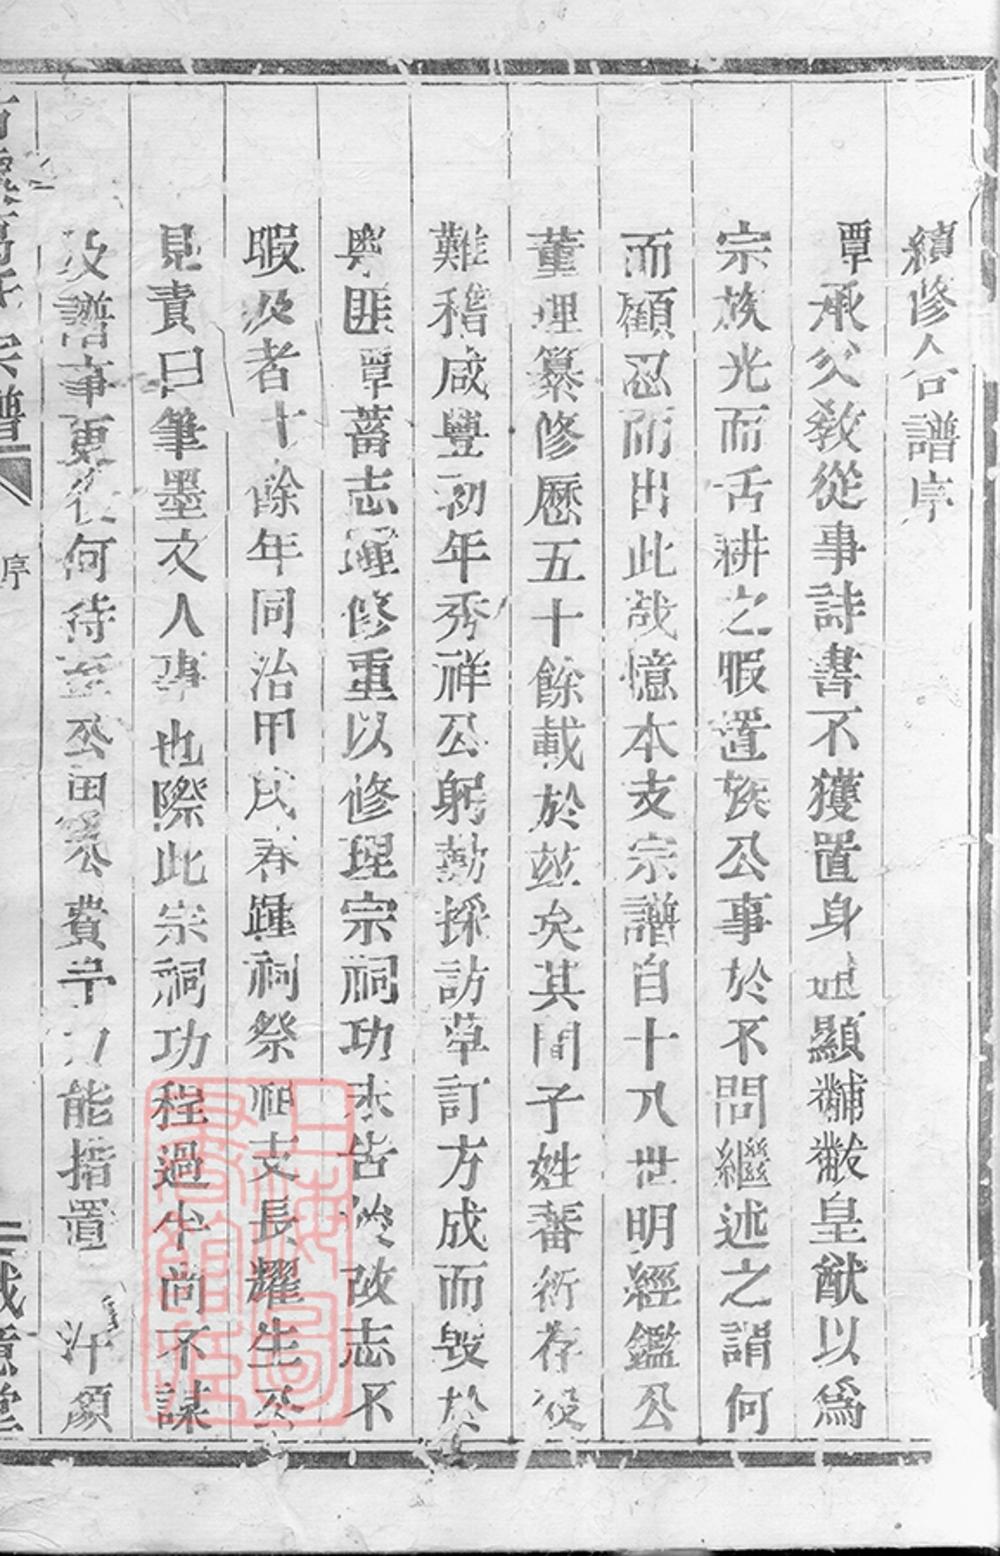 續修合譜序
覃承父教從事詩書不獲置身通顯黼黻皇猷以爲
宗族光而舌耕之暇置族公事於不問繼述之謂何
而顧忍而出此哉憶本支宗譜自十八世明經鑑公
董理纂修歷五十餘載於茲矣其間子姓蕃衍存歿
難稽咸豐初年秀祥公躬勤採訪草訂方成而毀於
粵匪覃蓄志踵修重以修理宗祠功未告竣故志不
暇及者十餘年同治甲戌春踵祠祭祀支長耀生公
見責曰筆墨文人事也際此宗祠功程過半尚不謀
及譜事更復何待至公田爲公費予力能措置 汗顏
宗譜
序
一
誠意堂
上海圖書館藏